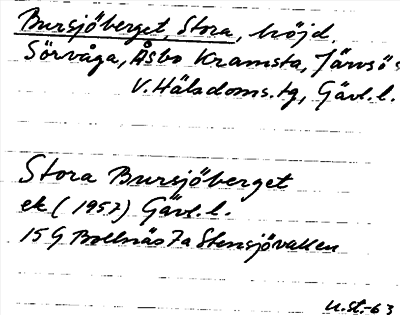 Bursjöberget, Stora, höjd,
Sörvåga, Åsbo Kramsta, Järvsö s
V. Hälsdoms. tg, Gävl. l.
Stora Bursjöberget
ek (1957) Gävl. l.
15G Bollnäs 7a Stensjövallen
U. St. -63